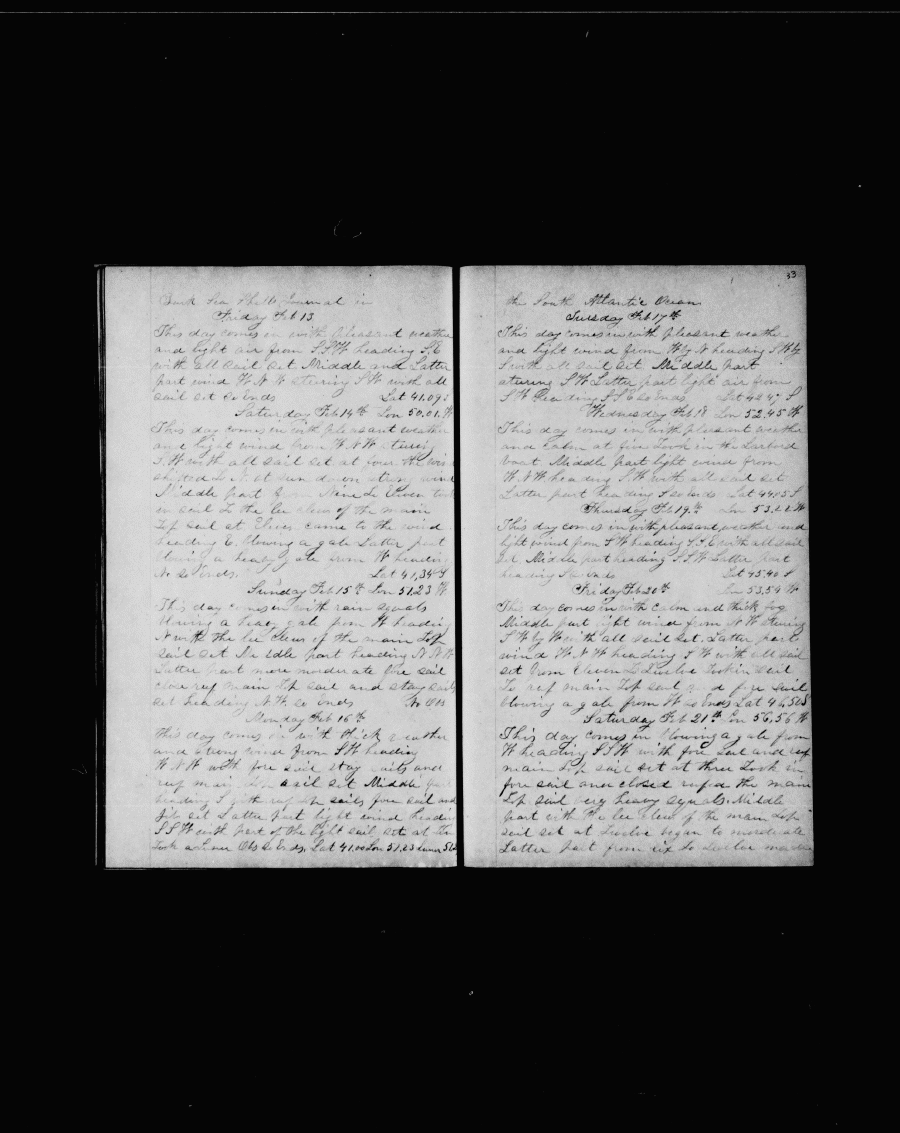 Bark Sea Journal in
Friday Feb 13
This day comes in with pleasant weather
and light air from S.S.W heading S.E
with all sail set Middle and Latter
part wind W.N.W steering S.W with all
sail set So Ends Lat 41.09 S
Saturday Feb 14th Lon 50.01. W
This day comes in with pleasant weather
and light wind from W.N.W steering
S.W with all sail set at four the wind
shifted to S. at sun down strong wind
Middle part from Nine to Eleven took
in sail to the lee clew of the main
Top sail at Eleven came to the wind
heading E. blowing a gale Latter part
blowing a heavy gale from W heading
N. So Ends. Lat 41,34 S
Sunday Feb 15th Lon 51,23 W
This day comes in with rain squals
blowing a heavy gale from W heading
N with the lee clew of the main Top
sail set Middle part heading N.N.W
Latter part more moderate fore sail
close reef main Top sail and stay sails
set heading N.W. so Ends No Obs
Monday Feb 16th
this day comes in with thick weather
and strong wind from S.W heading
W.N.W with fore sail stay sails and
reef main Top sail set Middle part
heading S with reef top sails fore sail and
jib set Latter part light wind heading
S.S.W with part of the light sail set at
Took a Lunar Obs So Ends. Lat 41.00 Lon 51.23 Lunar
33
the South Atlantic Ocean
Tuesday Feb 17th
This day comes in with pleasant weather
and light wind from W by N heading S.W by
South all sail set. Middle part
steering S.W Latter part light air from
S.W heading S.S.E So Ends Lat 42 47 S
Wednesday Feb 18 Lon 52,45 W
This day comes in with pleasant weather
and Calm at five Took in the Larbord
boat Middle part light wind from
W.N.W heading S.W with all sail set
Latter part heading S so Ends Lat 44.05 S
Thursday Feb 19th Lon 53.22 W
This day comes in with pleasant weather and
light wind from S.W heading S.S.E with all sail
set. Middle part heading S.S.W Latter part
heading S so Ends Lat 45,40 S
Friday Feb 20th Lon 53,54 W
This day comes in with calm and thick fog
Middle part light wind from N.W steering
S.W by W with all sail set. Latter part
wind W.N.W heading S.W with all sail
set from Eleven to Twelve Took in sail
to reef main Top sail and fore sail
blowing a gale from W So Ends Lat 46,50 S
Saturday Feb 21th Lon 56,56 W
This day comes in blowing a gale from
W heading S.S.W with fore sail and reef
main Top sail set at three Took in
fore sail and closed reefed the main
Top sail very heavy squals. Middle
part with the lee clew of the main Top
sail set at Twelve began to moderate
Latter part from six to Twelve